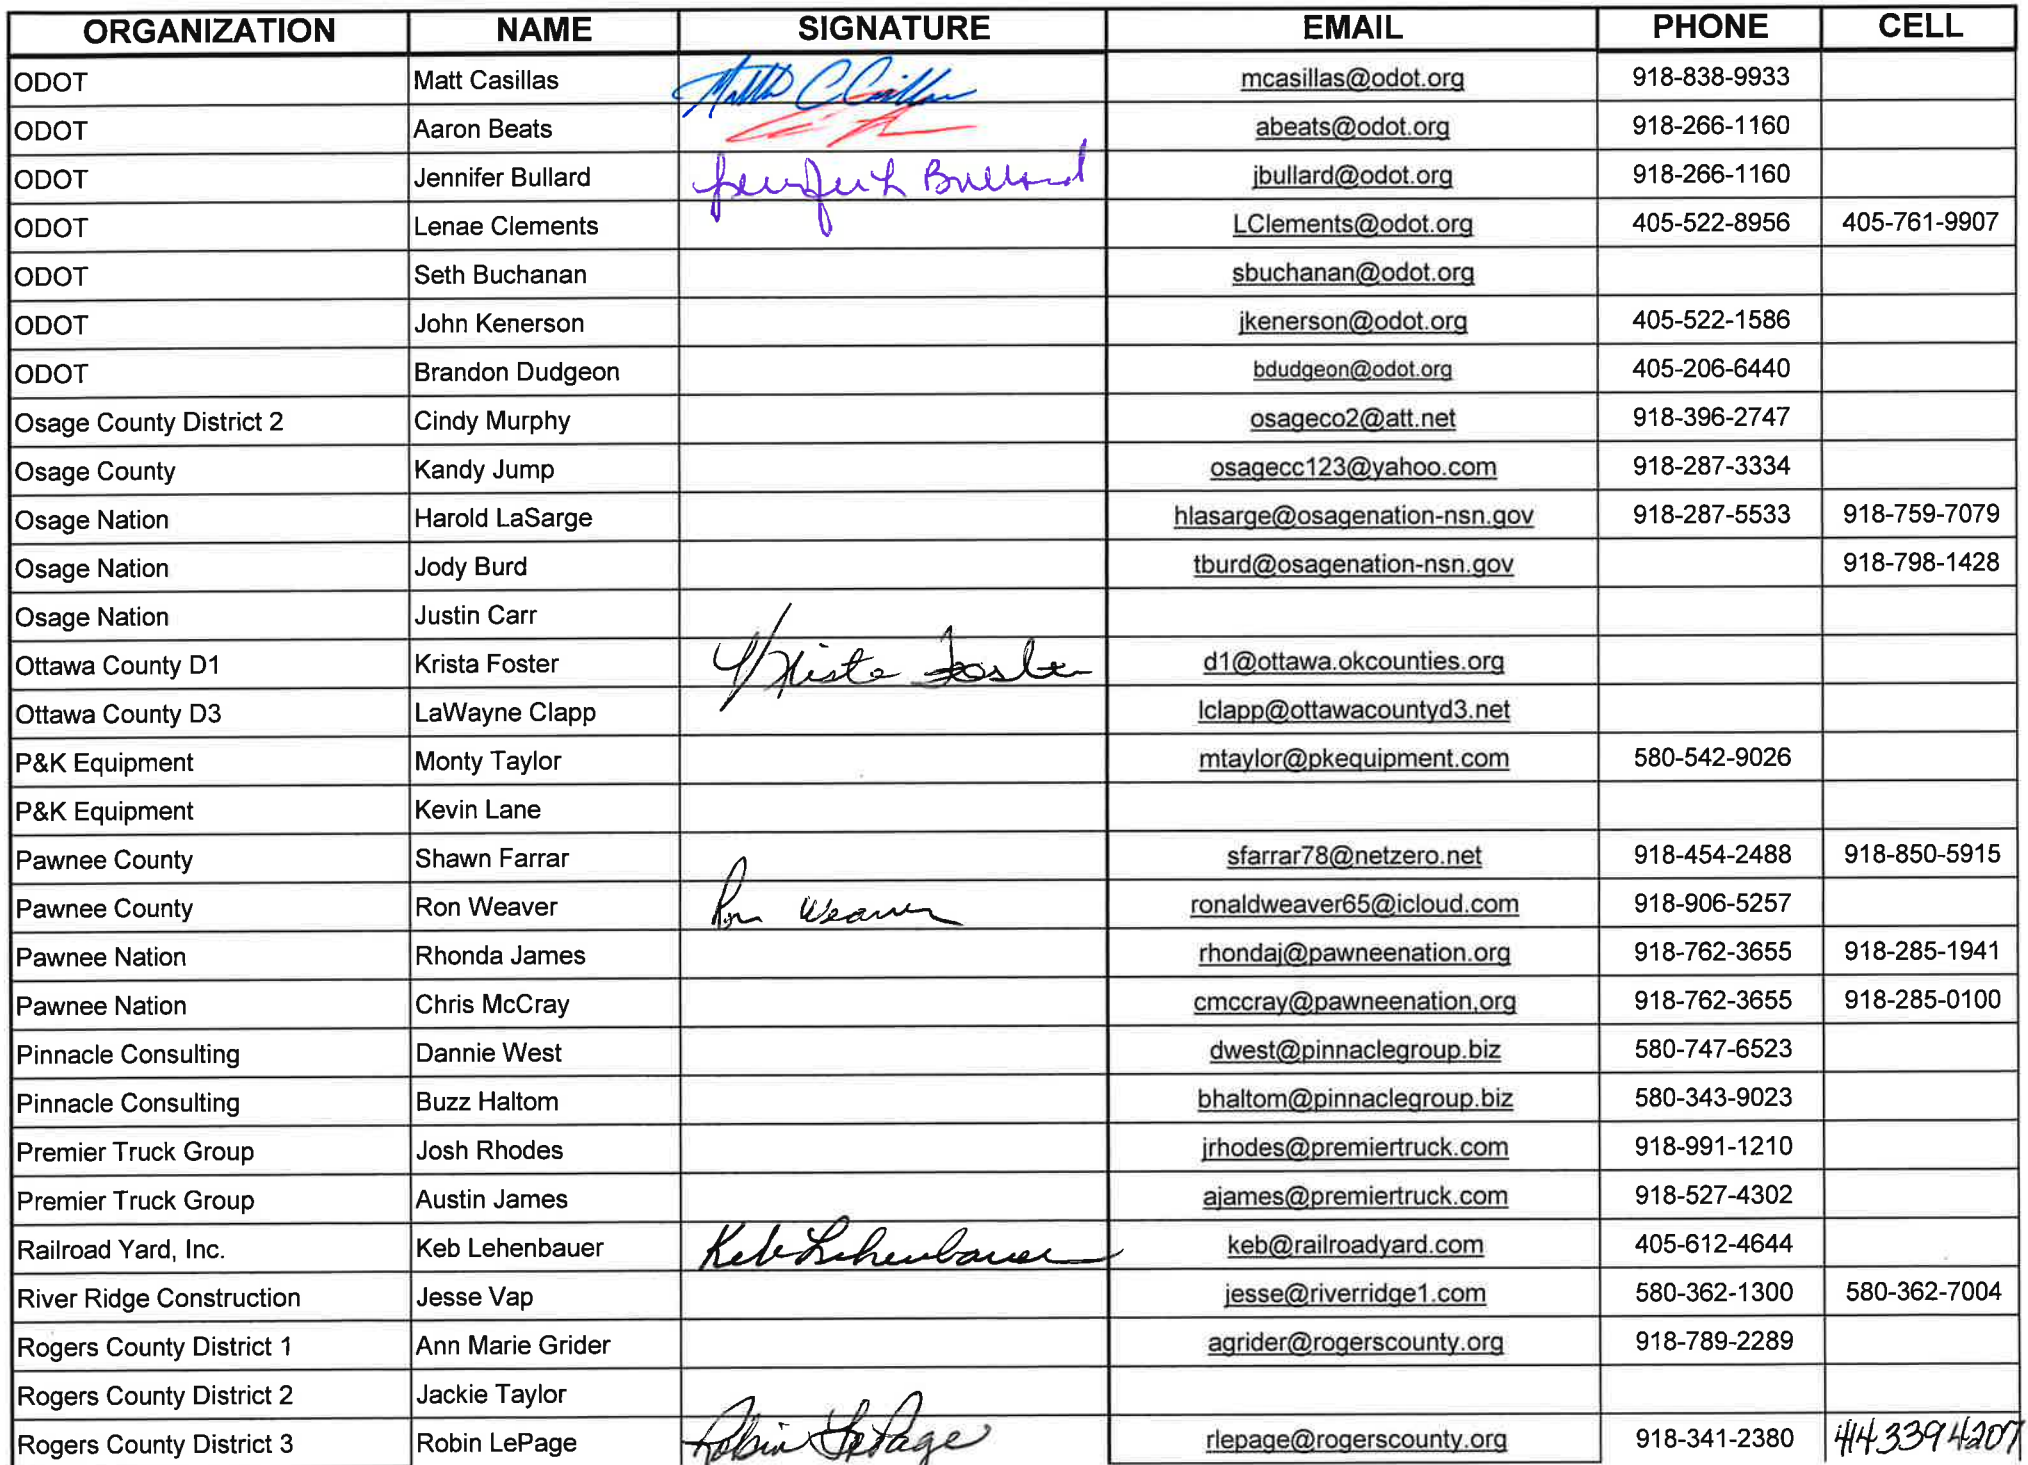 ORGANIZATION NAME SIGNATURE EMAIL PHONE CELL
ODOT Matt Casillas Matth C Casillas mcasillas@odot.org 918-838-9933
ODOT Aaron Beats abeats@odot.org 918-266-1160
ODOT Jennifer Bullard Jennifer L Bullard jbullard@odot.org 918-266-1160
ODOT Lenae Clements LClements@odot.org 405-522-8956 405-761-9907
ODOT Seth Buchanan sbuchanan@odot.org
ODOT John Kenerson jkenerson@odot.org 405-522-1586
ODOT Brandon Dudgeon bdudgeon@odot.org 405-206-6440
Osage County District 2 Cindy Murphy osageco2@att.net 918-396-2747
Osage County Kandy Jump osagecc123@yahoo.com 918-287-3334
Osage Nation Harold LaSarge hlasarge@osagenation-nsn.gov 918-287-5533 918-759-7079
Osage Nation Jody Burd tburd@osagenation-nsn.gov 918-798-1428
Osage Nation Justin Carr
Ottawa County D1 Krista Foster Krista Foster d1@ottawa.okcounties.org
Ottawa County D3 LaWayne Clapp lclapp@ottawacountyd3.net
P&K Equipment Monty Taylor mtaylor@pkequipment.com 580-542-9026
P&K Equipment Kevin Lane
Pawnee County Shawn Farrar sfarrar78@netzero.net 918-454-2488 918-850-5915
Pawnee County Ron Weaver Ron Weaver ronaldweaver65@icloud.com 918-906-5257
Pawnee Nation Rhonda James rhondaj@pawneenation.org 918-762-3655 918-285-1941
Pawnee Nation Chris McCray cmccray@pawneenation,org 918-762-3655 918-285-0100
Pinnacle Consulting Dannie West dwest@pinnaclegroup.biz 580-747-6523
Pinnacle Consulting Buzz Haltom bhaltom@pinnaclegroup.biz 580-343-9023
Premier Truck Group Josh Rhodes jrhodes@premiertruck.com 918-991-1210
Premier Truck Group Austin James ajames@premiertruck.com 918-527-4302
Railroad Yard, Inc. Keb Lehenbauer Keb Lehenbauer keb@railroadyard.com 405-612-4644
River Ridge Construction Jesse Vap jesse@riverridge1.com 580-362-1300 580-362-7004
Rogers County District 1 Ann Marie Grider agrider@rogerscounty.org 918-789-2289
Rogers County District 2 Jackie Taylor
Rogers County District 3 Robin LePage Robin LePage rlepage@rogerscounty.org 918-341-2380 443394207